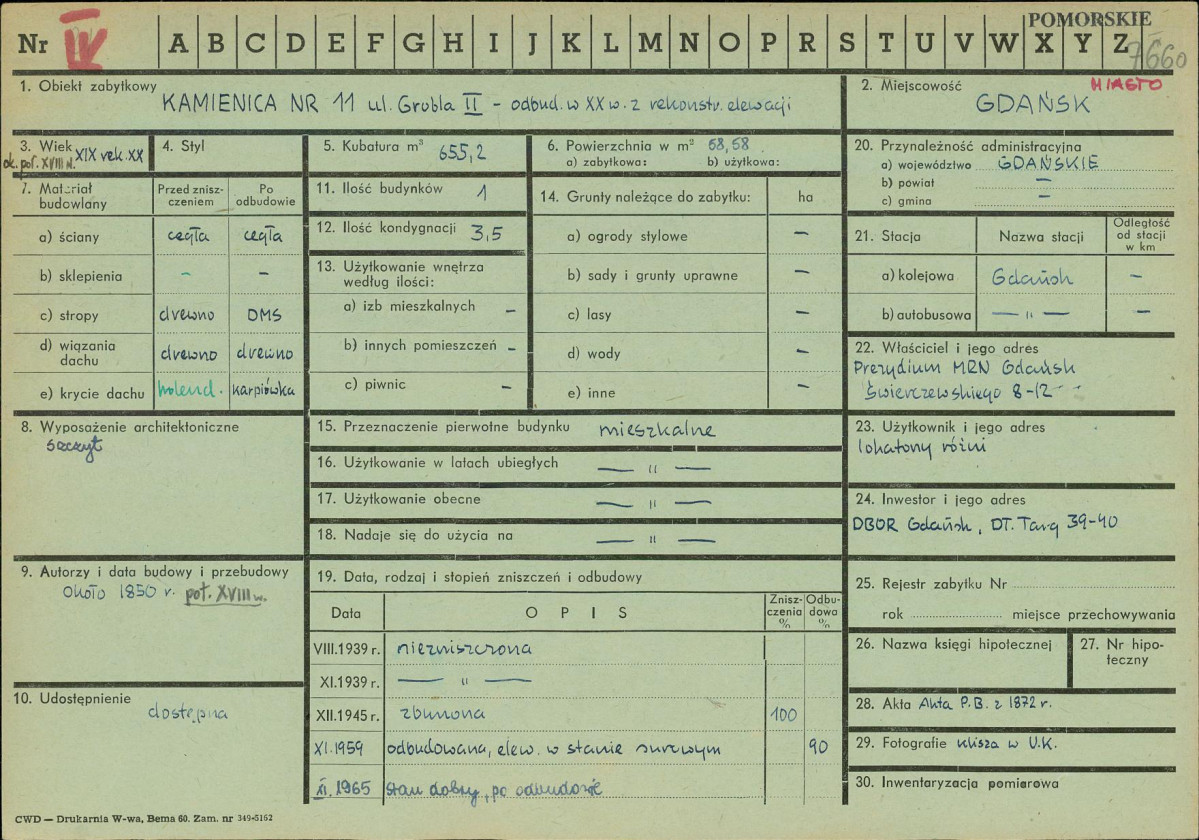 POMORSKIE
Nr IV A B C D E F G H I J K L M N O P R S T U V W X Y Z 7660
1. Obiekt zabytkowy
KAMIENICA NR 11 ul. Grobla II – odbud. w XX w. z rekonstr. elewacji
2. Miejscowość MIASTO
GDAŃSK
3. Wiek XIX rek. XX
ok. poł. XVIII w.
4. Styl
5. Kubatura m³ 655,2
6. Powierzchnia w m² 58,58
a) zabytkowa: b) użytkowa:
7. Materiał budowlany
Przed zniszczeniem
Po odbudowie
a) ściany cegła cegła
b) sklepienia – –
c) stropy drewno DMS
d) wiązania dachu drewno drewno
e) krycie dachu holend. karpiówka
8. Wyposażenie architektoniczne
szczyt
9. Autorzy i data budowy i przebudowy
około 1850 r. poł. XVIII w.
10. Udostępnienie
dostępna
11. Ilość budynków 1
12. Ilość kondygnacji 3,5
13. Użytkowanie wnętrza
według ilości:
a) izb mieszkalnych –
b) innych pomieszczeń –
c) piwnic –
14. Grunty należące do zabytku: ha
a) ogrody stylowe –
b) sady i grunty uprawne –
c) lasy –
d) wody –
e) inne –
15. Przeznaczenie pierwotne budynku mieszkalne
16. Użytkowanie w latach ubiegłych — " —
17. Użytkowanie obecne — " —
18. Nadaje się do użycia na — " —
19. Data, rodzaj i stopień zniszczeń i odbudowy
Data OPIS Zniszczenia % Odbudowa %
VIII.1939 r. niezniszczona
XI.1939 r. — " —
XII.1945 r. zburzona 100
XI.1959 odbudowana, elew. w stanie surowym 90
XI.1965 stan dobry, po odbudowie
20. Przynależność administracyjna
a) województwo GDAŃSKIE
b) powiat –
c) gmina –
21. Stacja Nazwa stacji Odległość od stacji w km
a) kolejowa Gdańsk –
b) autobusowa — " — –
22. Właściciel i jego adres
Prezydium MRN Gdańsk
Świerczewskiego 8-12
23. Użytkownik i jego adres
lokatorzy różni
24. Inwestor i jego adres
DBOR Gdańsk, Dł. Targ 39-40
25. Rejestr zabytku Nr
rok miejsce przechowywania
26. Nazwa księgi hipotecznej
27. Nr hipoteczny
28. Akta Akta P.B. z 1872 r.
29. Fotografie klisza w U.K.
30. Inwentaryzacja pomiarowa
CWD — Drukarnia W-wa, Bema 60. Zam. nr 349-5162